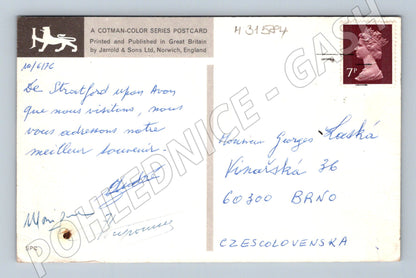 A COTMAN-COLOR SERIES POSTCARD
Printed and Published in Great Britain
by Jarrold & Sons Ltd, Norwich, England
H 31584
7P
10/6/76
De Stratford upon Avon
que nous visitons, nous
vous adressons notre
meilleur souvenir.
Monsieur Georges Laská
Vinařská 36
60300 BRNO
CZESCOLOVENSKA
SPC
POHLEDNICE - GASH